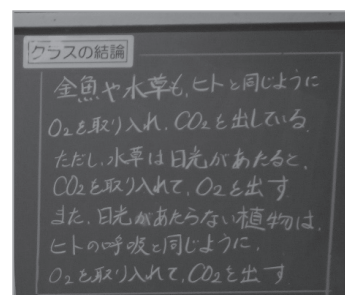 クラスの結論
金魚や水草も、ヒトと同じように
O₂を取り入れ、CO₂を出している。
ただし、水草は日光があたると、
CO₂を取り入れて、O₂を出す
また、日光があたらない植物は、
ヒトの呼吸と同じように、
O₂を取り入れて、CO₂を出す